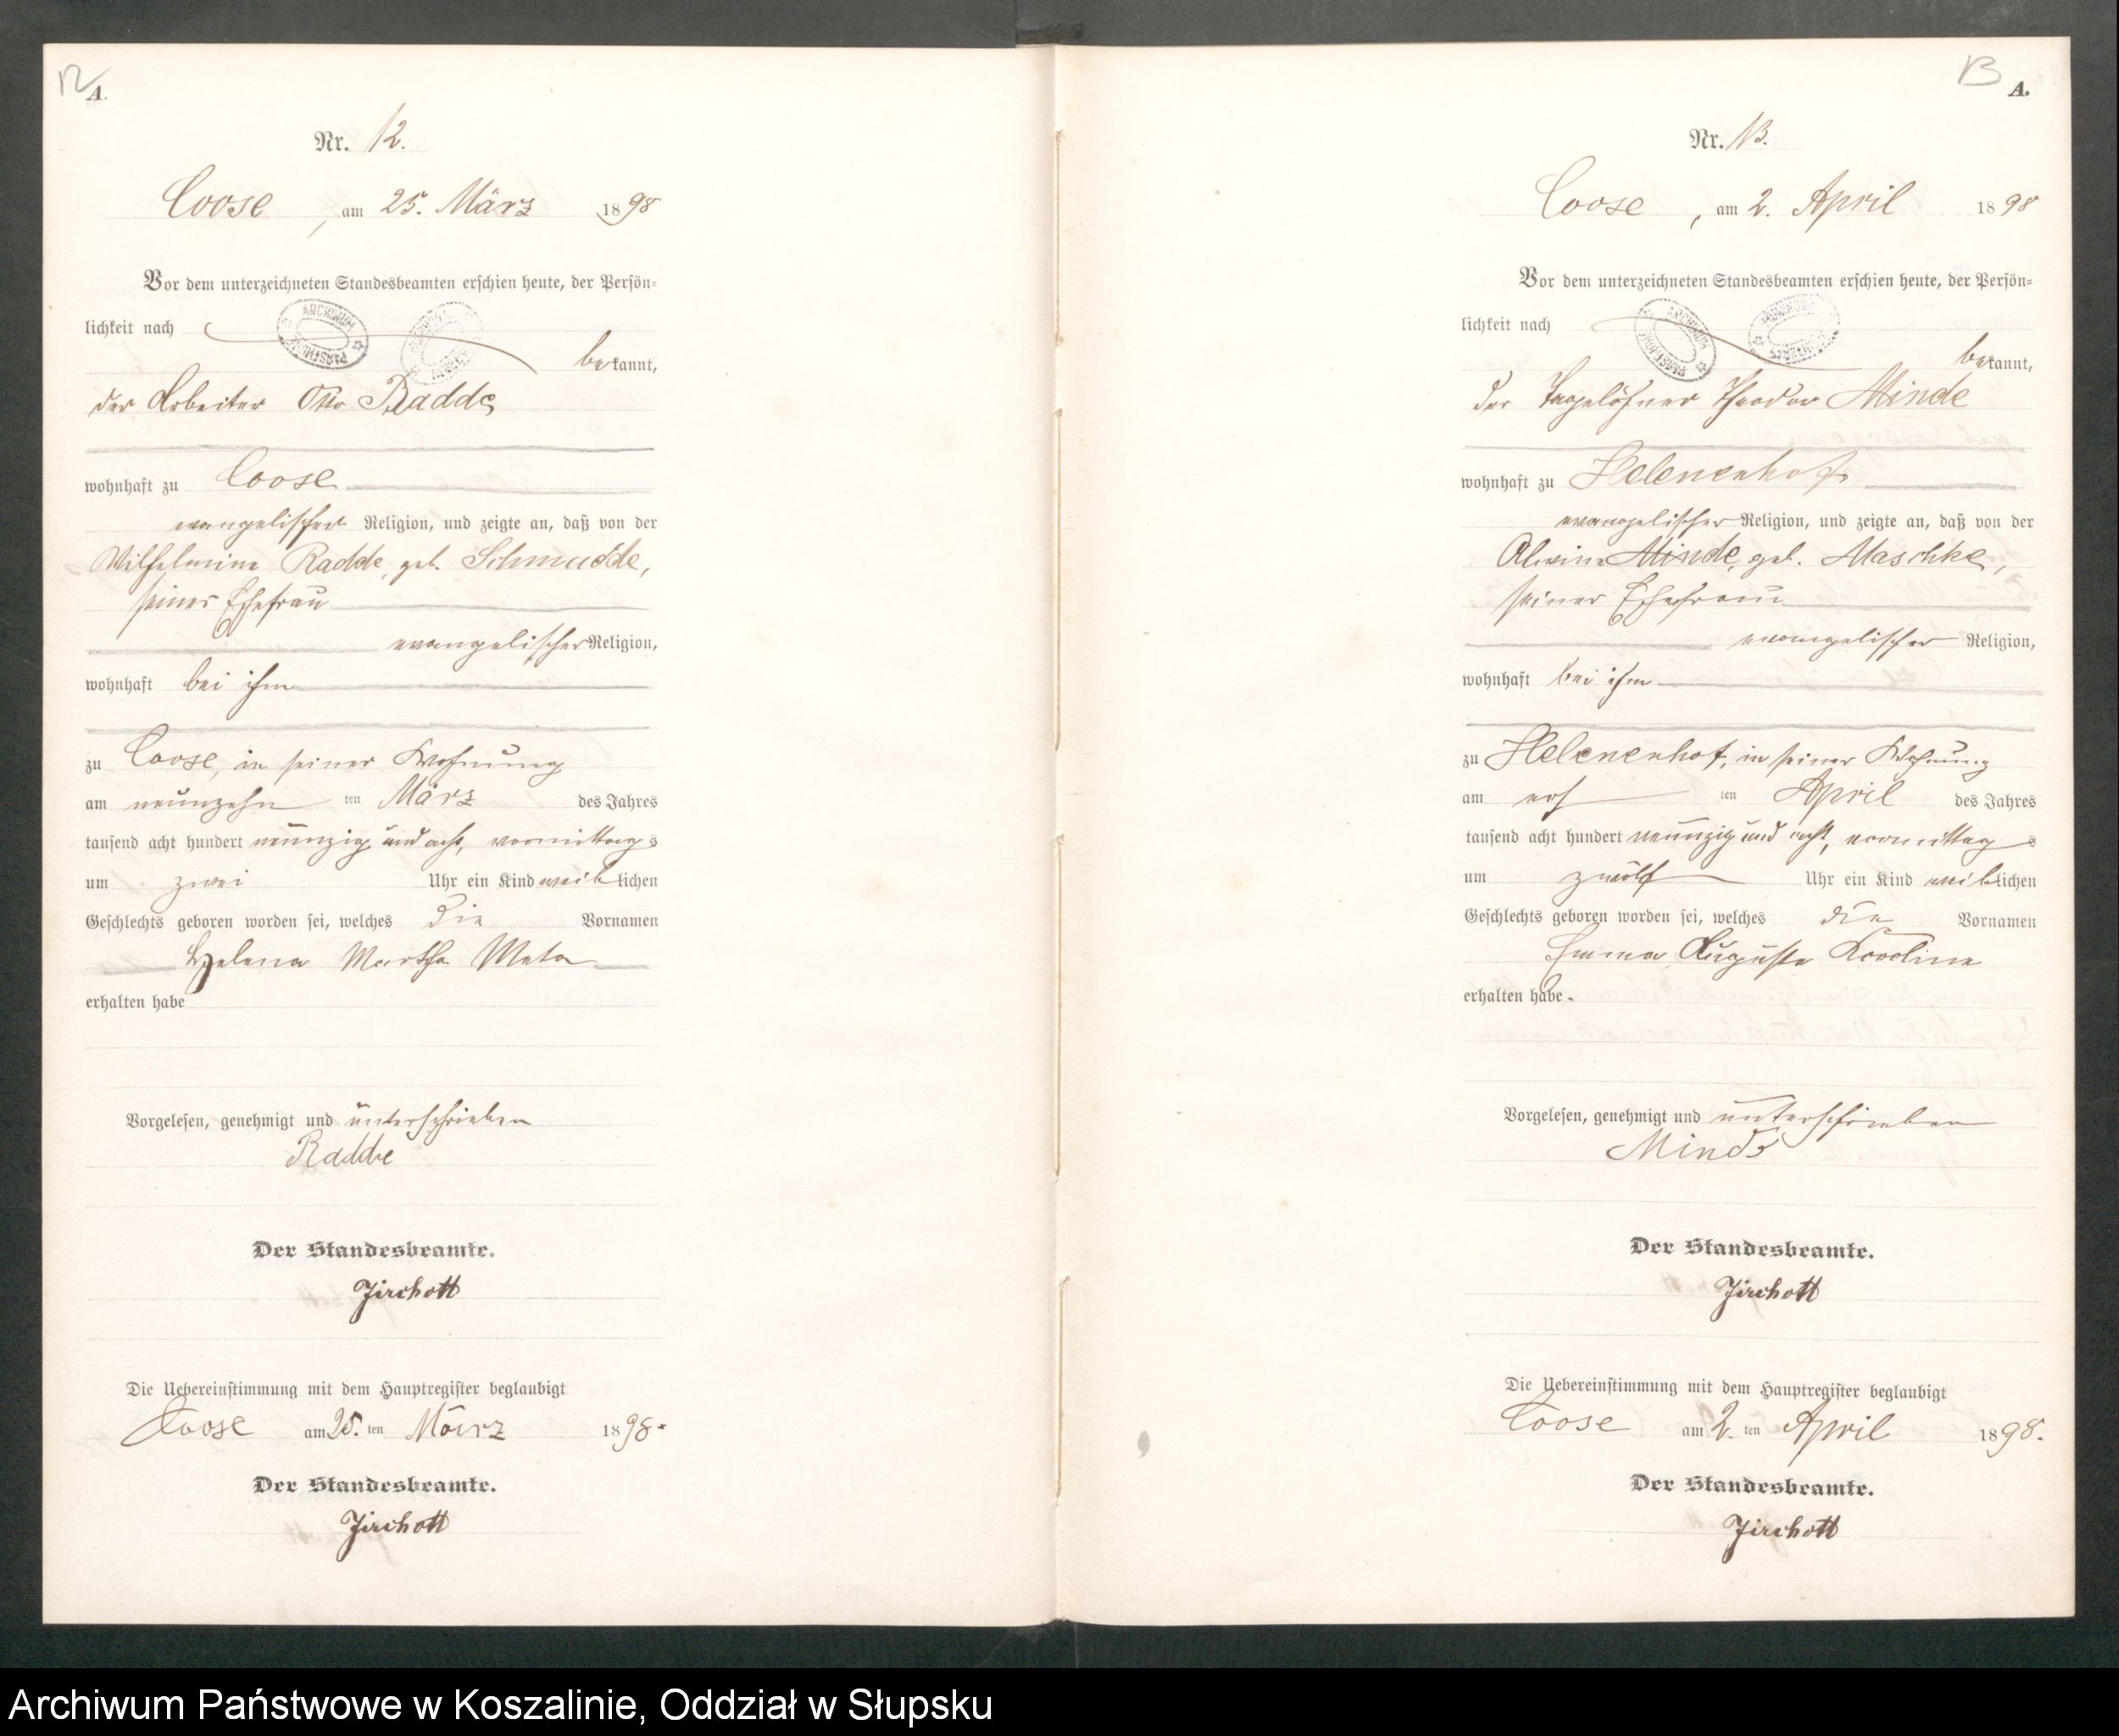 12
A.
Nr. 12.
Coose, am 25. März 1898
Vor dem unterzeichneten Standesbeamten erschien heute, der Persön=
lichkeit nach
bekannt,
der Arbeiter Otto Radde
wohnhaft zu Coose
evangelischer Religion, und zeigte an, daß von der
Wilhelmine Radde, geb. Schmudde,
seiner Ehefrau
evangelischer Religion,
wohnhaft bei ihm
zu Coose, in seiner Wohnung
am neunzehn ten März des Jahres
tausend acht hundert neunzig und acht, vormittags
um zwei Uhr ein Kind weiblichen
Geschlechts geboren worden sei, welches die Vornamen
Helena Martha Meta
erhalten habe
Vorgelesen, genehmigt und unterschrieben
Radde
Der Standesbeamte.
Zirchott
Die Uebereinstimmung mit dem Hauptregister beglaubigt
Coose am 25. ten März 1898.
Der Standesbeamte.
Zirchott
13
A.
Nr. 13.
Coose, am 2. April 1898
Vor dem unterzeichneten Standesbeamten erschien heute, der Persön=
lichkeit nach
bekannt,
der Tagelöhner Theodor Minde
wohnhaft zu Helenenhof
evangelischer Religion, und zeigte an, daß von der
Alwine Minde, geb. Maschke,
seiner Ehefrau
evangelischer Religion,
wohnhaft bei ihm
zu Helenenhof, in seiner Wohnung
am ers ten April des Jahres
tausend acht hundert neunzig und acht, vormittags
um zwölf Uhr ein Kind weiblichen
Geschlechts geboren worden sei, welches die Vornamen
Emma Auguste Karoline
erhalten habe.
Vorgelesen, genehmigt und unterschrieben
Minde
Der Standesbeamte.
Zirchott
Die Uebereinstimmung mit dem Hauptregister beglaubigt
Coose am 2. ten April 1898.
Der Standesbeamte.
Zirchott
Archiwum Państwowe w Koszalinie, Oddział w Słupsku